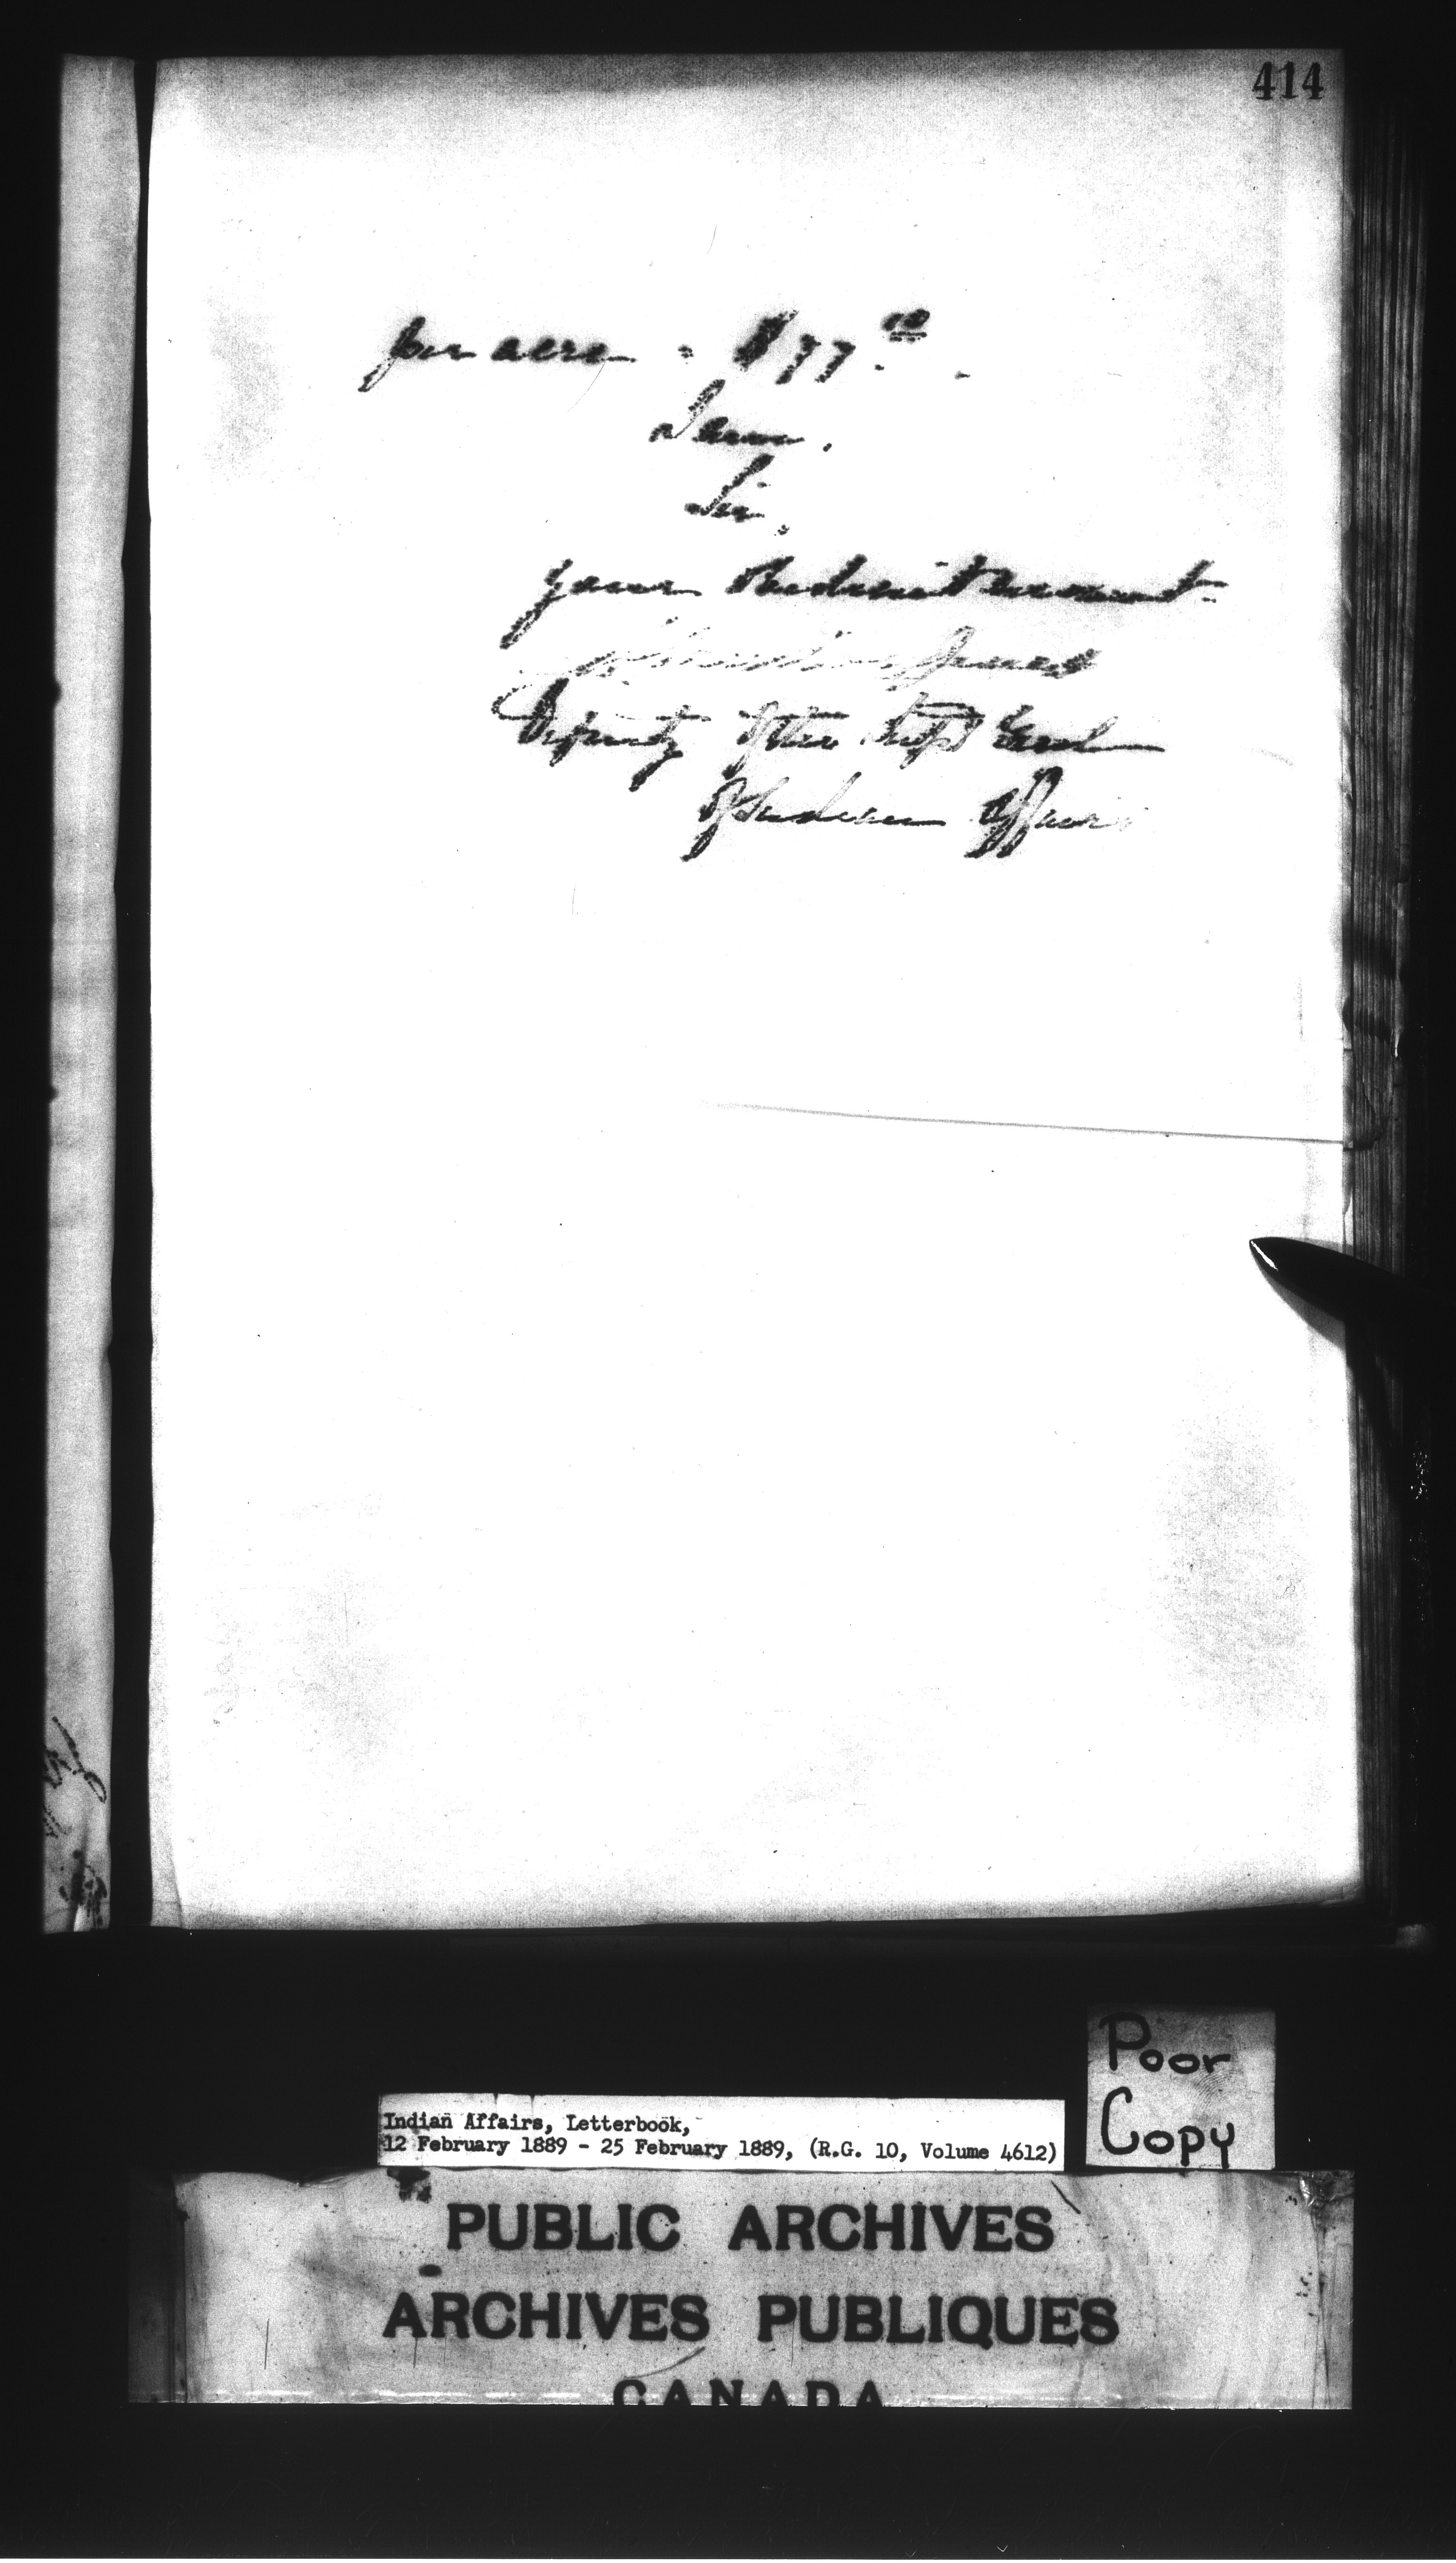 414
per acre = $77.00.
I am,
Sir,
Your Obedient servant
Deputy of the Supt Genl
of Indian Affairs
Poor
Copy
Indian Affairs, Letterbook,
12 February 1889 - 25 February 1889, (R.G. 10, Volume 4612)
PUBLIC ARCHIVES
ARCHIVES PUBLIQUES
CANADA